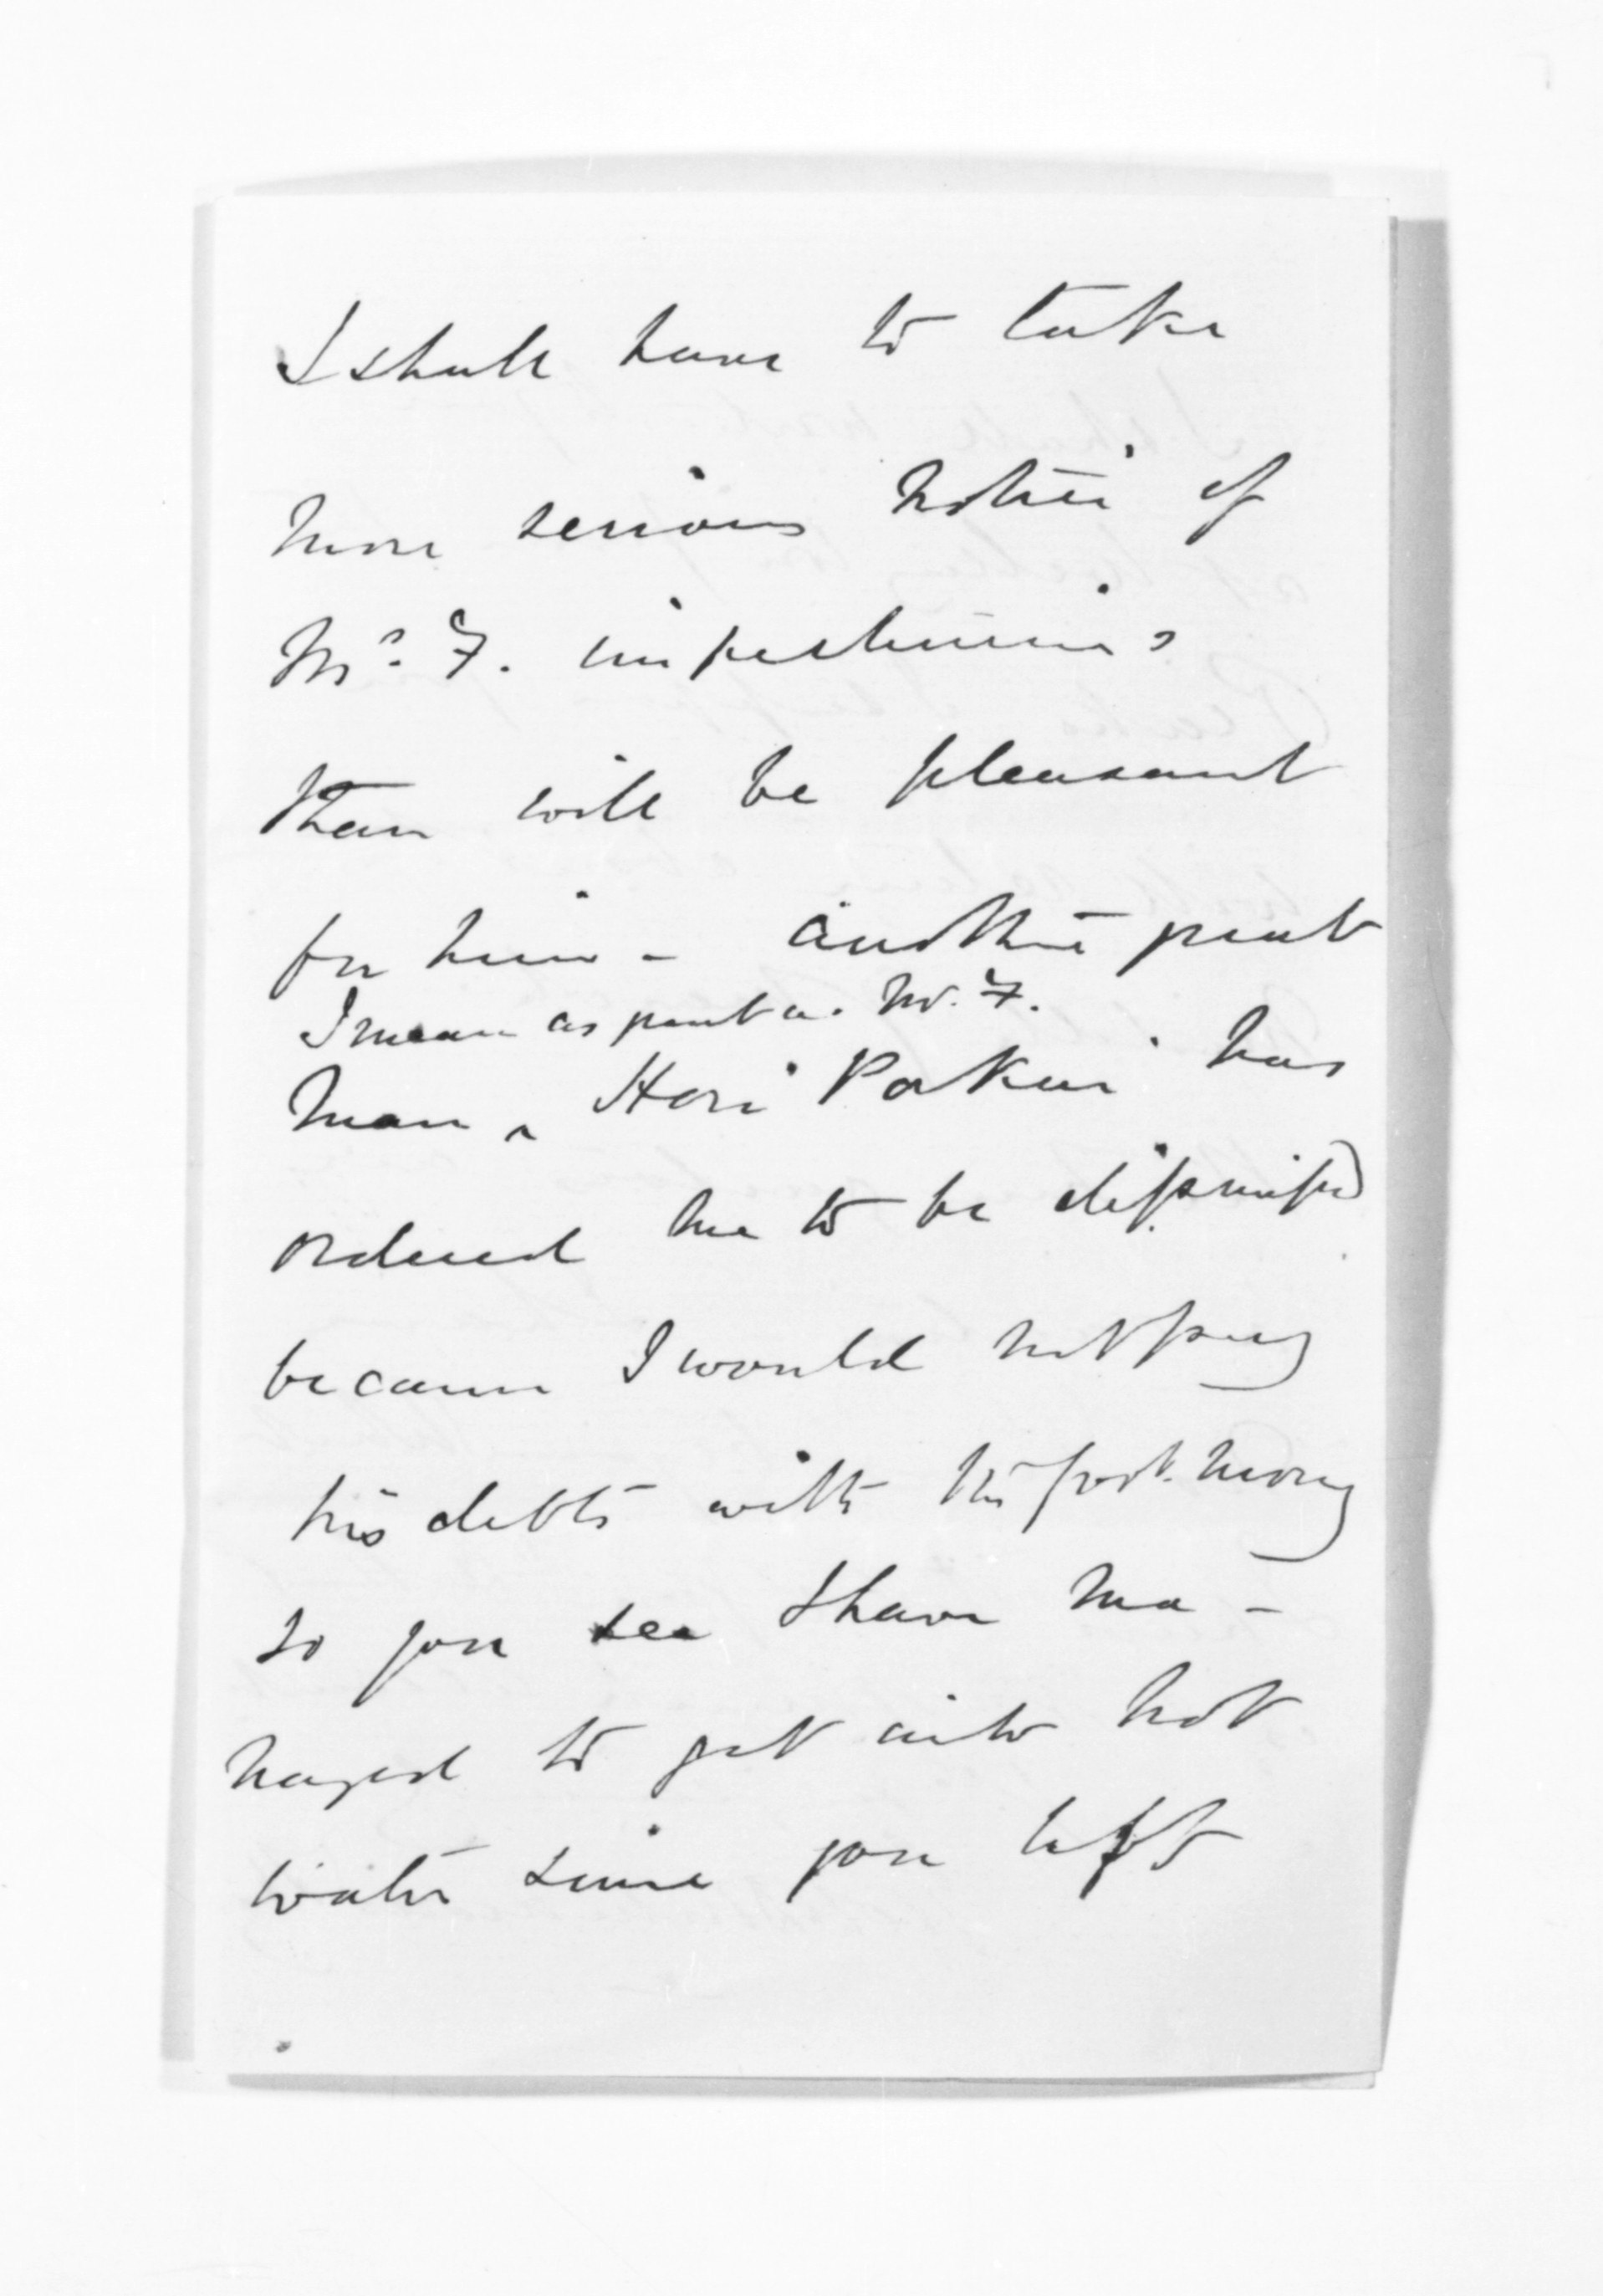 I shall have to take
more serious notice of
Mr. F. impertinence
than will be pleasant
for him - another great
I mean as great as Mr. F.
man, Hori Pokai has
ordered me to be dismissed
because I would not pay
his debts with the Govt. money
so you see I have ma-
naged to get into hot
water since you left